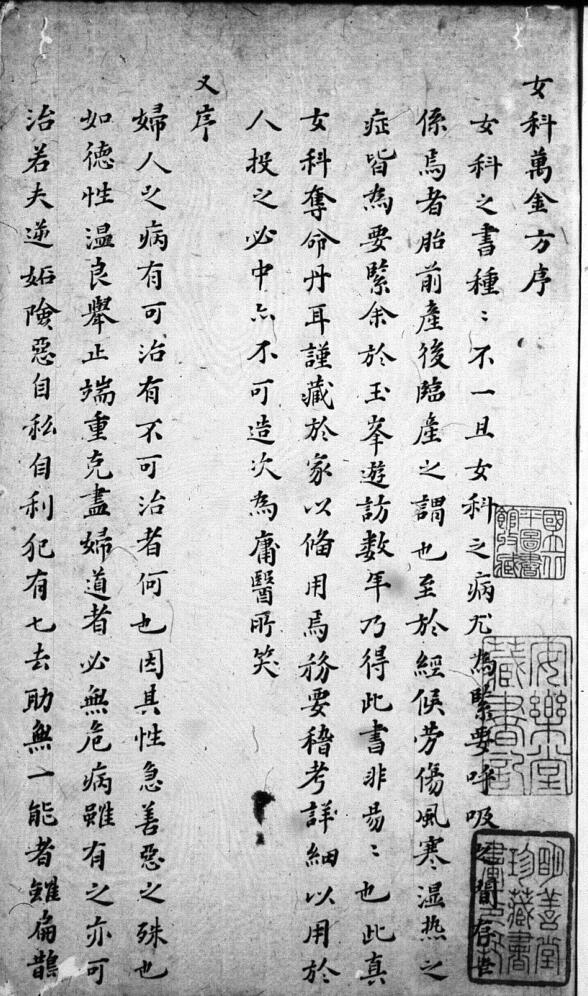 女科萬金方序
女科之書種〻不一且女科之病尤為緊要呼吸之間存亡
係焉者胎前產後臨產之謂也至於經候劳傷風寒湿热之
症皆為要緊余於玉峯遊訪数年乃得此書非易〻也此真
女科奪命丹耳謹藏於家以俻用焉務要稽考詳細以用於
人投之必中亦不可造次為庸醫所笑
又序
婦人之病有可治有不可治者何也因其性急善惡之殊也
如徳性温良舉止端重克盡婦道者必無危病雖有之亦可
治若夫逆妬險惡自私自利犯有七去助無一能者雖扁鵲
國立北平圖書館收藏
安樂堂藏書記
明善堂珍藏書畫印記